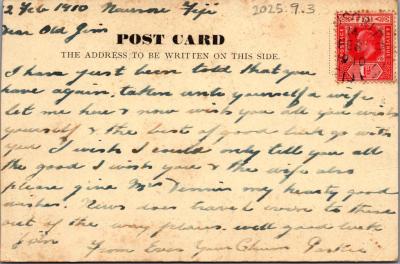 2 Feb 1910 Nausori Fiji
2025.9.3
Dear Old Jim
POST CARD
THE ADDRESS TO BE WRITTEN ON THIS SIDE.
FIJI
I have just been told that you
have again taken unto yourself a wife
let me here & now wish you all you wish
yourself & the best of good luck go with
you I wish I could only tell you all
the good I wish you & the wife also
please give Mrs my hearty good
wishes. News does travel even to these
out of the way places. well good luck
from Ever Your Chum